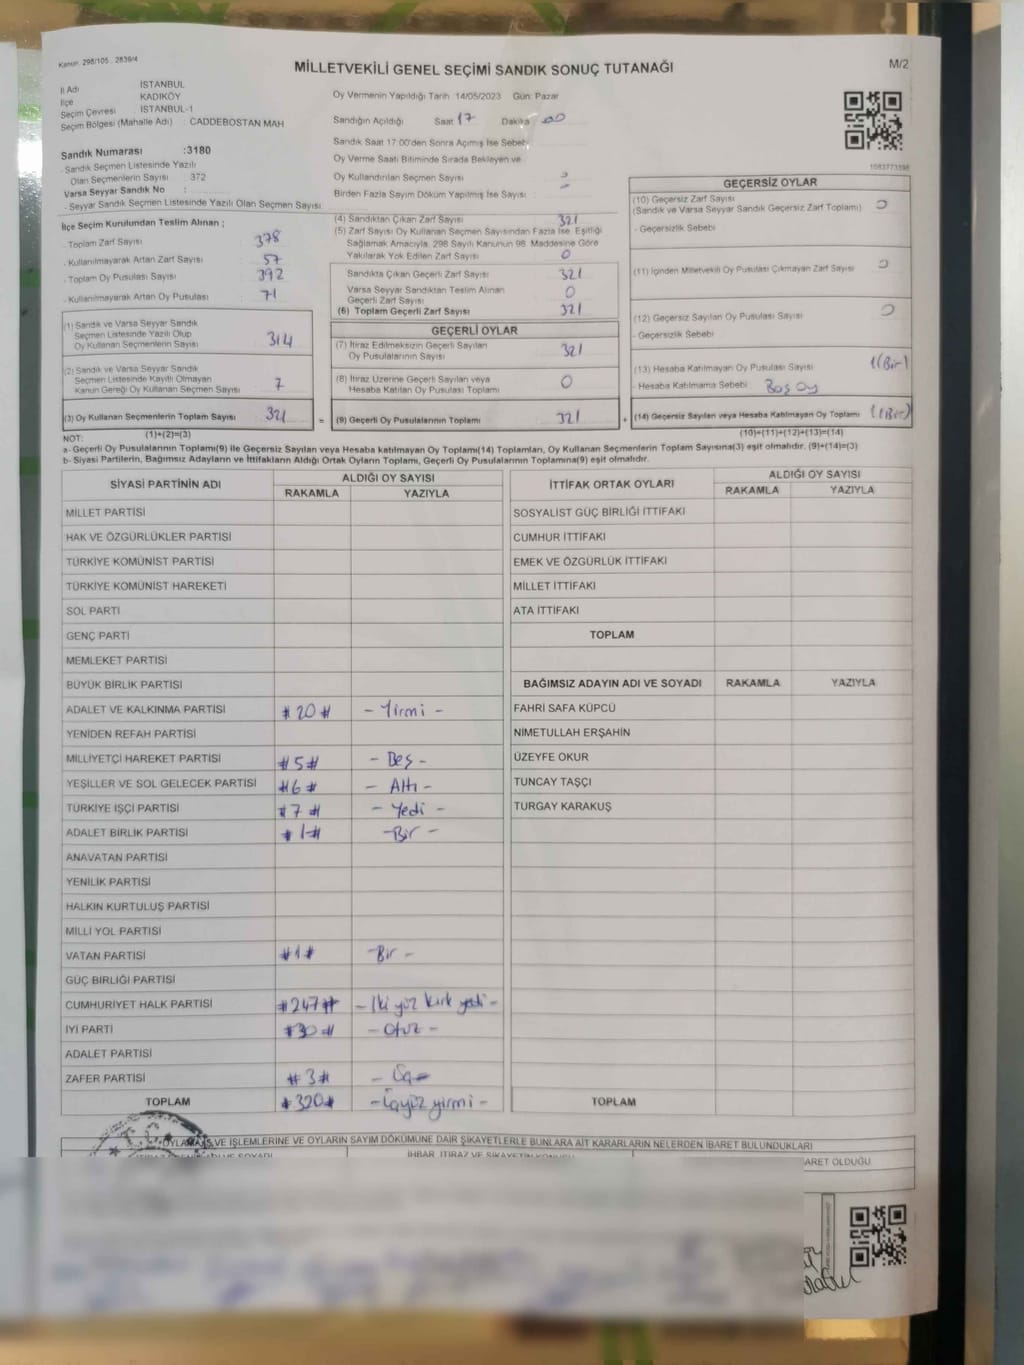 Kanun: 298/105 , 2839/4
MİLLETVEKİLİ GENEL SEÇİMİ SANDIK SONUÇ TUTANAĞI
M/2
İl Adı İSTANBUL
İlçe KADIKÖY
Seçim Çevresi İSTANBUL-1
Seçim Bölgesi (Mahalle Adı) : CADDEBOSTAN MAH
Oy Vermenin Yapıldığı Tarih 14/05/2023 Gün: Pazar
Sandığın Açıldığı Saat 17 Dakika 00
Sandık Saat 17:00'den Sonra Açımış İse Sebebi
Oy Verme Saati Bitiminde Sırada Bekleyen ve
Oy Kullandırılan Seçmen Sayısı
Birden Fazla Sayım Döküm Yapılmış İse Sayısı
1083773898
Sandık Numarası :3180
- Sandık Seçmen Listesinde Yazılı
Olan Seçmenlerin Sayısı : 372
Varsa Seyyar Sandık No :
- Seyyar Sandık Seçmen Listesinde Yazılı Olan Seçmen Sayısı:
İlçe Seçim Kurulundan Teslim Alınan ;
- Toplam Zarf Sayısı 378
- Kullanılmayarak Artan Zarf Sayısı 57
- Toplam Oy Pusulası Sayısı 392
- Kullanılmayarak Artan Oy Pusulası 71
(1) Sandık ve Varsa Seyyar Sandık
Seçmen Listesinde Yazılı Olup
Oy Kullanan Seçmenlerin Sayısı 314
(2) Sandık ve Varsa Seyyar Sandık
Seçmen Listesinde Kayıtlı Olmayan
Kanun Gereği Oy Kullanan Seçmen Sayısı 7
(3) Oy Kullanan Seçmenlerin Toplam Sayısı 321 =
(1)+(2)=(3)
(4) Sandıktan Çıkan Zarf Sayısı 321
(5) Zarf Sayısı Oy Kullanan Seçmen Sayısından Fazla İse, Eşitliği
Sağlamak Amacıyla, 298 Sayılı Kanunun 98. Maddesine Göre
Yakılarak Yok Edilen Zarf Sayısı 0
Sandıkta Çıkan Geçerli Zarf Sayısı 321
Varsa Seyyar Sandıktan Teslim Alınan
Geçerli Zarf Sayısı 0
(6) Toplam Geçerli Zarf Sayısı 321
GEÇERLİ OYLAR
(7) İtiraz Edilmeksizin Geçerli Sayılan
Oy Pusulalarının Sayısı 321
(8) İtiraz Üzerine Geçerli Sayılan veya
Hesaba Katılan Oy Pusulası Toplamı 0
(9) Geçerli Oy Pusulalarının Toplamı 321 +
GEÇERSİZ OYLAR
(10) Geçersiz Zarf Sayısı
(Sandık ve Varsa Seyyar Sandık Geçersiz Zarf Toplamı) 0
- Geçersizlik Sebebi
(11) İçinden Milletvekili Oy Pusulası Çıkmayan Zarf Sayısı 0
(12) Geçersiz Sayılan Oy Pusulası Sayısı 0
- Geçersizlik Sebebi
(13) Hesaba Katılmayan Oy Pusulası Sayısı 1(Bir)
- Hesaba Katılmama Sebebi Boş Oy
(14) Geçersiz Sayılan veya Hesaba Katılmayan Oy Toplamı 1(Bir)
(10)+(11)+(12)+(13)=(14)
NOT:
a- Geçerli Oy Pusulalarının Toplamı(9) ile Geçersiz Sayılan veya Hesaba katılmayan Oy Toplamı(14) Toplamları, Oy Kullanan Seçmenlerin Toplam Sayısına(3) eşit olmalıdır. (9)+(14)=(3)
b- Siyasi Partilerin, Bağımsız Adayların ve İttifakların Aldığı Ortak Oyların Toplamı, Geçerli Oy Pusulalarının Toplamına(9) eşit olmalıdır.
SİYASİ PARTİNİN ADI
ALDIĞI OY SAYISI
RAKAMLA YAZIYLA
MİLLET PARTİSİ
HAK VE ÖZGÜRLÜKLER PARTİSİ
TÜRKİYE KOMÜNİST PARTİSİ
TÜRKİYE KOMÜNİST HAREKETİ
SOL PARTİ
GENÇ PARTİ
MEMLEKET PARTİSİ
BÜYÜK BİRLİK PARTİSİ
ADALET VE KALKINMA PARTİSİ #20# - Yirmi -
YENİDEN REFAH PARTİSİ
MİLLİYETÇİ HAREKET PARTİSİ #5# - Beş -
YEŞİLLER VE SOL GELECEK PARTİSİ #6# - Altı -
TÜRKİYE İŞÇİ PARTİSİ #7# - Yedi -
ADALET BİRLİK PARTİSİ #1# - Bir -
ANAVATAN PARTİSİ
YENİLİK PARTİSİ
HALKIN KURTULUŞ PARTİSİ
MİLLİ YOL PARTİSİ
VATAN PARTİSİ #1# - Bir -
GÜÇ BİRLİĞİ PARTİSİ
CUMHURİYET HALK PARTİSİ #247# - İki yüz kırk yedi -
İYİ PARTİ #30# - Otuz -
ADALET PARTİSİ
ZAFER PARTİSİ #3# - Üç -
TOPLAM #320# - Üçyüz yirmi -
İTTİFAK ORTAK OYLARI
ALDIĞI OY SAYISI
RAKAMLA YAZIYLA
SOSYALİST GÜÇ BİRLİĞİ İTTİFAKI
CUMHUR İTTİFAKI
EMEK VE ÖZGÜRLÜK İTTİFAKI
MİLLET İTTİFAKI
ATA İTTİFAKI
TOPLAM
BAĞIMSIZ ADAYIN ADI VE SOYADI RAKAMLA YAZIYLA
FAHRİ SAFA KÜPCÜ
NİMETULLAH ERŞAHİN
ÜZEYFE OKUR
TUNCAY TAŞÇI
TURGAY KARAKUŞ
TOPLAM
T.C.
OYLAMA VE İŞLEMLERİNE VE OYLARIN SAYIM DÖKÜMÜNE DAİR ŞİKAYETLERLE BUNLARA AİT KARARLARIN NELERDEN İBARET BULUNDUKLARI
İHBAR, İTİRAZ VE ŞİKAYETİN KONUSU
ARET OLDUĞU